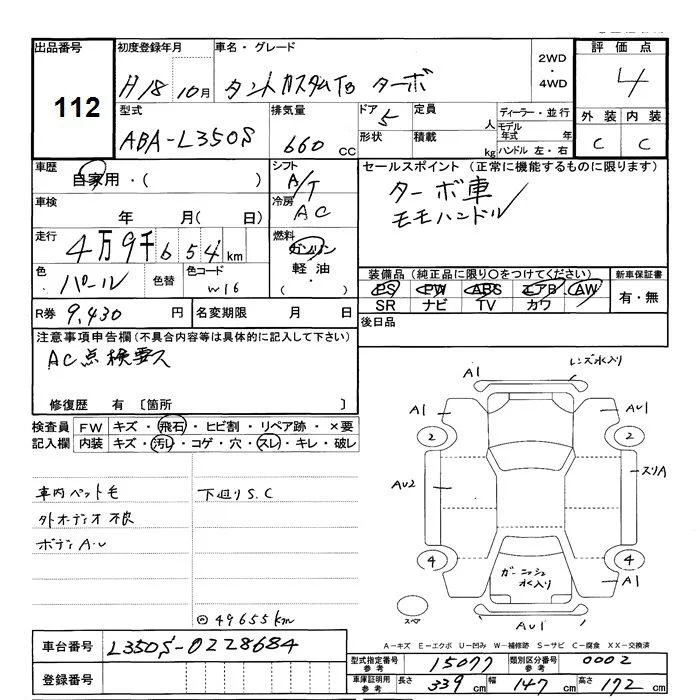 出品番号 初度登録年月 車名・グレード 2WD・4WD 評価点
112 H18 10月 タントカスタム ターボ 4
型式 排気量 ドア 定員 ディーラー・並行 外装 内装
ABA-L350S 660 cc 5 人 モデル年式 年 C C
形状 積載 kg ハンドル 左・右
車歴 シフト セールスポイント (正常に機能するものに限ります)
自家用・( ) A/T ターボ車
車検 冷房 モモハンドル
年 月( 日) AC
走行 4万9千654km 燃料 ガソリン 軽油 ( ・ )
色 パール 色替 色コード W16
装備品(純正品に限り○をつけてください) 新車保証書
PS PW ABS エアB AW 有・無
SR ナビ TV カワ
R券 9,430 円 名変期限 月 日 後日品
注意事項申告欄(不具合内容等は具体的に記入して下さい)
AC点検要ス
修復歴 有 [箇所 ]
検査員 FW キズ・飛石・ヒビ割・リペア跡・×要
記入欄 内装 キズ・汚レ・コゲ・穴・スレ・キレ・破レ
車内ペット毛 下廻りS.C
外オーディオ不良
ボディA・U
◎49655km
A1 レンズ水入り
A1 AU1
2 2
AU2 スリA
4 4
ガーニッシュ水入り
A1
スペア
AU1
A-キズ E-エクボ U-凹み W-補修跡 S-サビ C-腐食 XX-交換済
車台番号 L350S-0228684
型式指定番号 参考 15077 類別区分番号 参考 0002
登録番号
車庫証明用 参考 長さ 339cm 幅 147cm 高さ 172cm